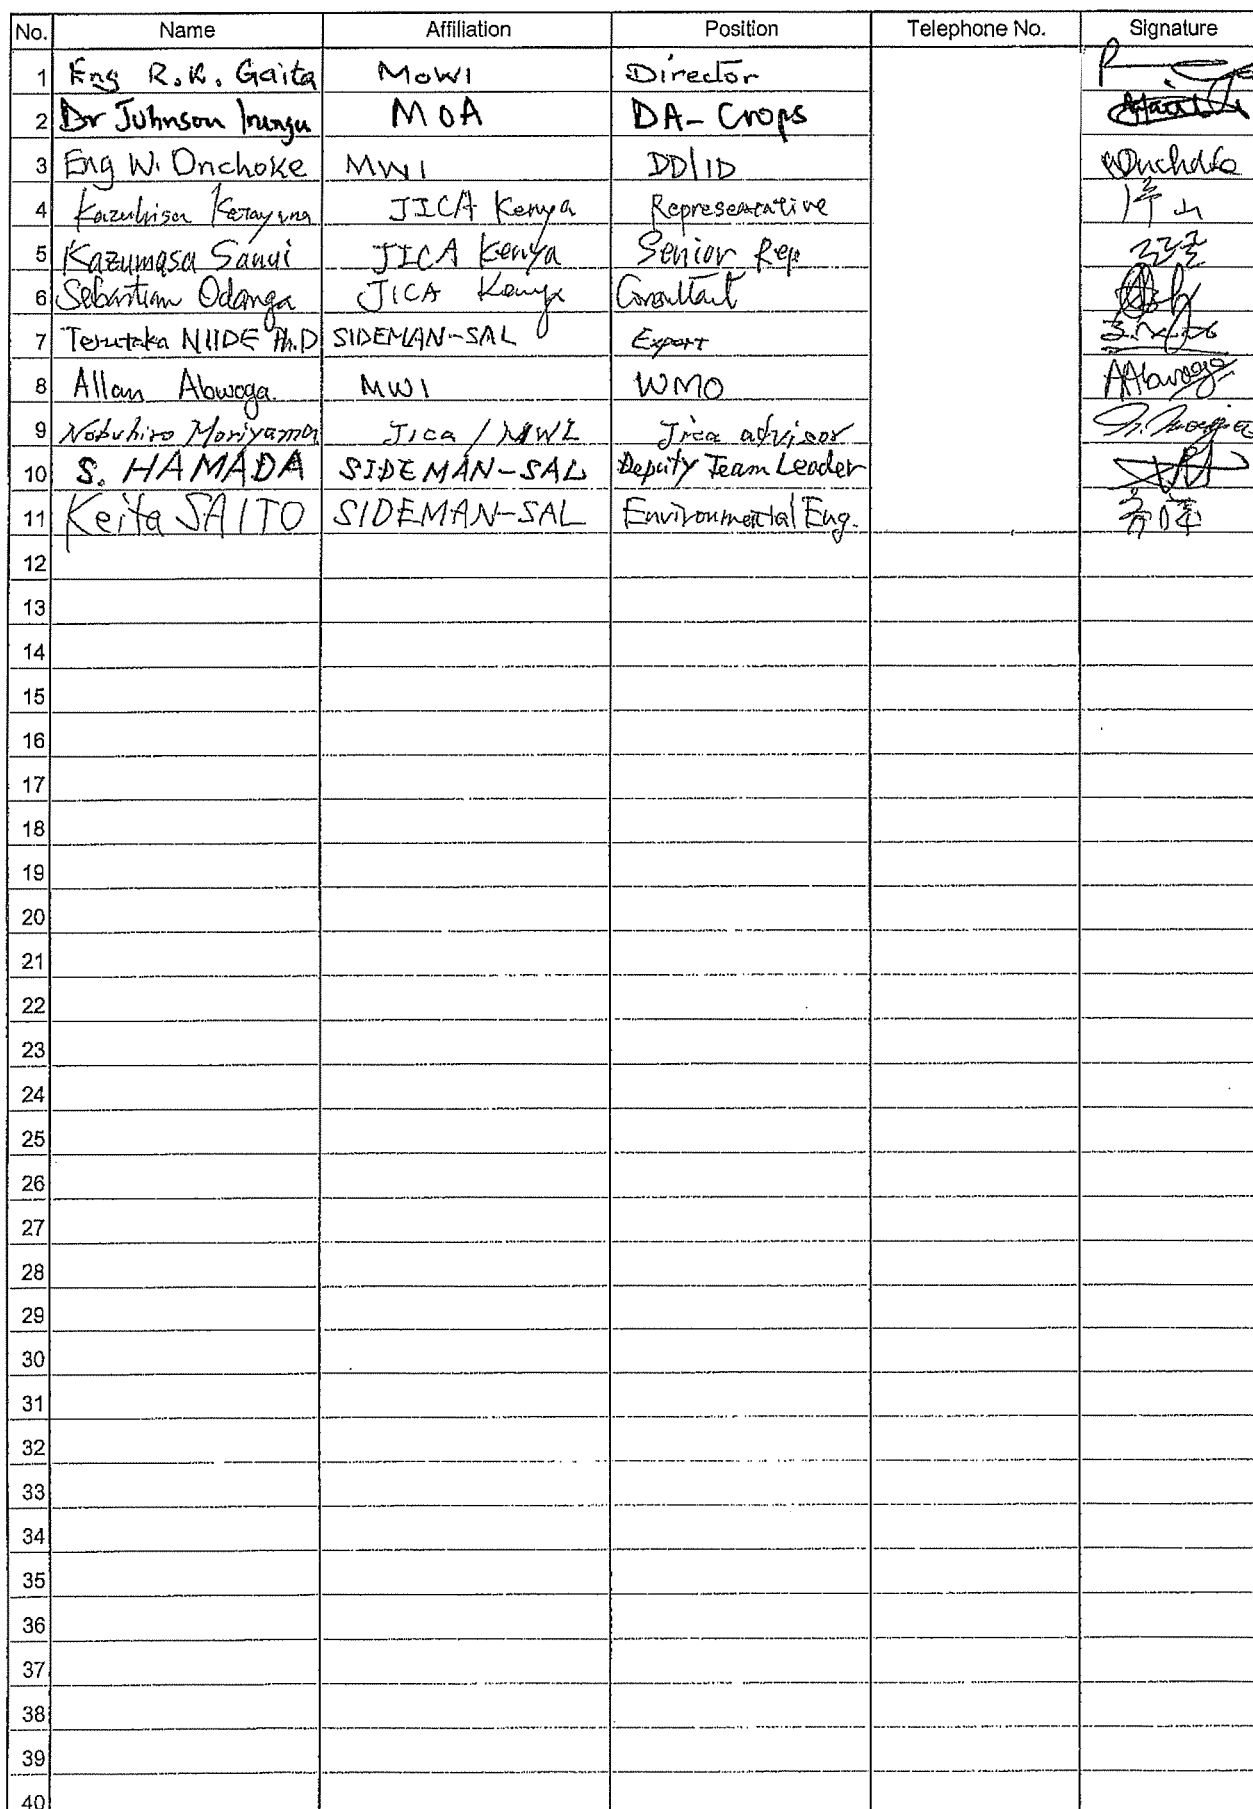 No. Name Affiliation Position Telephone No. Signature
1 Eng R.K. Gaita MoWI Director
2 Dr Johnson Irungu MOA DA-Crops
3 Eng W. Onchoke MWI DD/ID WOnchoke
4 Kazuhisa JICA Kenya Representative
5 Kazumasa Sanui JICA Kenya Senior Rep
6 Sebastian Odanga JICA Kenya Consultant
7 Terutaka NIIDE Ph.D SIDEMAN-SAL Expert
8 Allan Abwoga. MWI WMO AAbwoga
9 Nobuhiro Moriyama Jica / MWI Jica advisor
10 S. HAMADA SIDEMAN-SAL Deputy Team Leader
11 Keita SAITO SIDEMAN-SAL Environmental Eng.
12
13
14
15
16
17
18
19
20
21
22
23
24
25
26
27
28
29
30
31
32
33
34
35
36
37
38
39
40